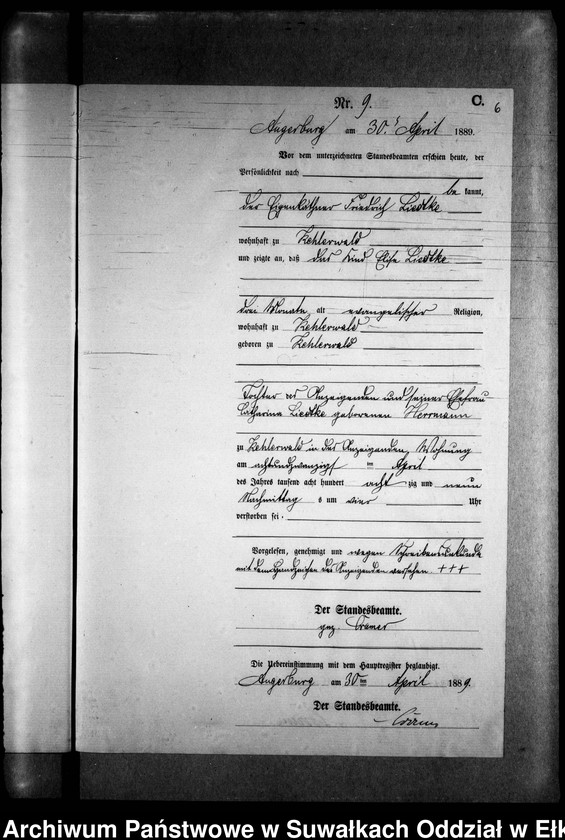 Nr. 9.
C.
6
Angerburg am 30. April 1889.
Vor dem unterzeichneten Standesbeamten erschien heute, der
Persönlichkeit nach
be kannt,
der Eigenkäthner Friedrich Liedtke
wohnhaft zu Kehlerwald
und zeigte an, daß das Kind Elise Liedtke
drei Monate alt evangelischer Religion,
wohnhaft zu Kehlerwald
geboren zu Kehlerwald
Tochter des Anzeigenden und seiner Ehefrau
Catharina Liedtke geborenen Herrmann
zu Kehlerwald in des Anzeigenden Wohnung
am achtundzwanzigsten April
des Jahres tausend acht hundert acht zig und neun
Nachmittag s um vier Uhr
verstorben sei.
Vorgelesen, genehmigt und wegen Schreibensunkunde
mit dem Handzeichen des Anzeigenden versehen. +++
Der Standesbeamte.
gez.
Die Uebereinstimmung mit dem Hauptregister beglaubigt.
Angerburg am 30ten April 1889.
Der Standesbeamte.
Archiwum Państwowe w Suwałkach Oddział w Ełk